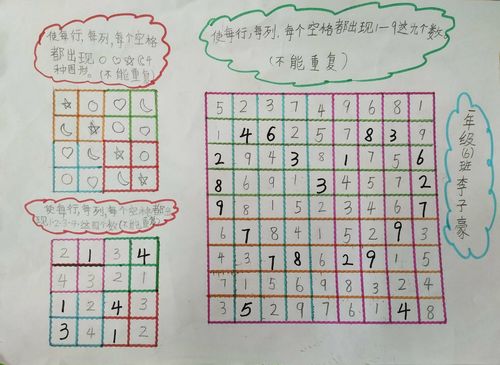 使每行,每列,每个空格
都出现○♡☆☾4
种图形。(不能重复)
使每行,每列,每个空格都出现1—9这九个数。
(不能重复)
使每行,每列,每个空格都出
现1·2·3·4·这四个数(不能重复)
2 1 3 4
4 3 2 1
1 2 4 3
3 4 1 2
5 2 3 7 4 9 6 8 1
1 4 6 2 5 7 8 3 9
2 9 4 3 8 1 7 5 6
8 6 9 1 3 4 5 7 2
9 8 1 5 2 3 4 6 7
6 7 8 4 1 5 2 9 3
4 3 7 8 6 2 9 1 5
7 1 5 6 9 8 3 2 4
3 5 2 9 7 6 1 4 8
一年级(6)班李子豪